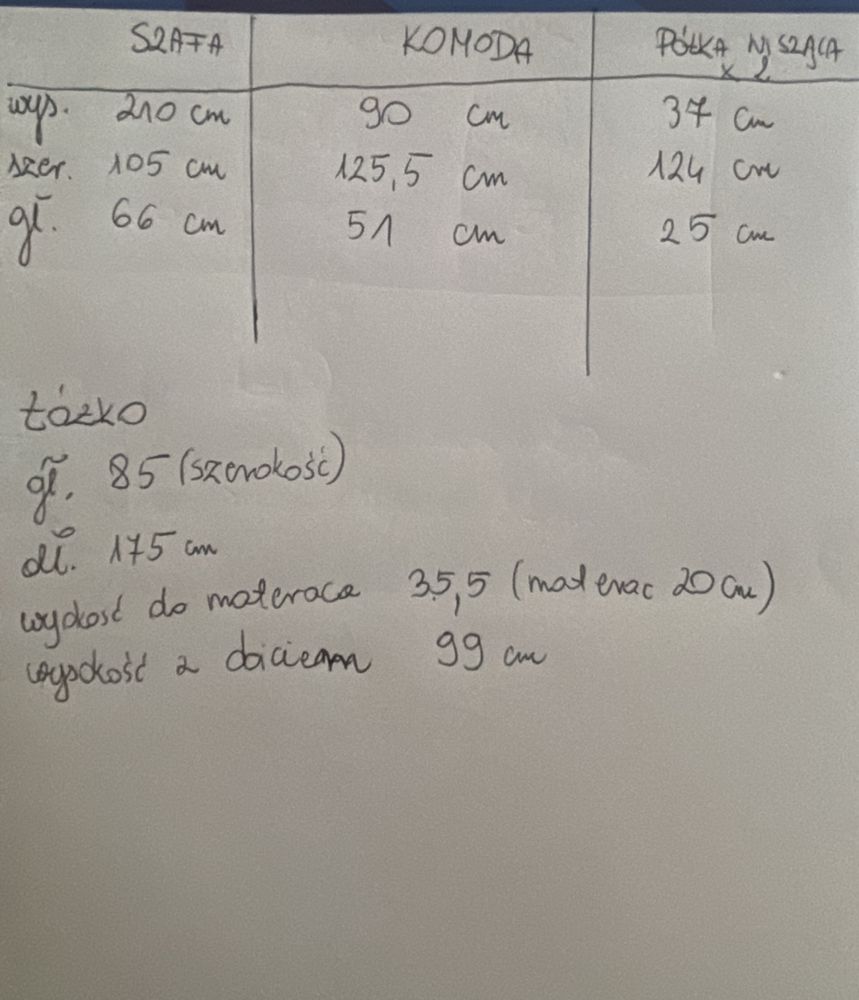 SZAFA KOMODA PÓŁKA WISZĄCA
x 2
wys. 210 cm 90 cm 37 cm
szer. 105 cm 125,5 cm 124 cm
gł. 66 cm 51 cm 25 cm
łóżko
gł. 85 (szerokość)
dł. 175 cm
wyokość do materaca 35,5 (materac 20 cm)
wysokość z obiciem 99 cm